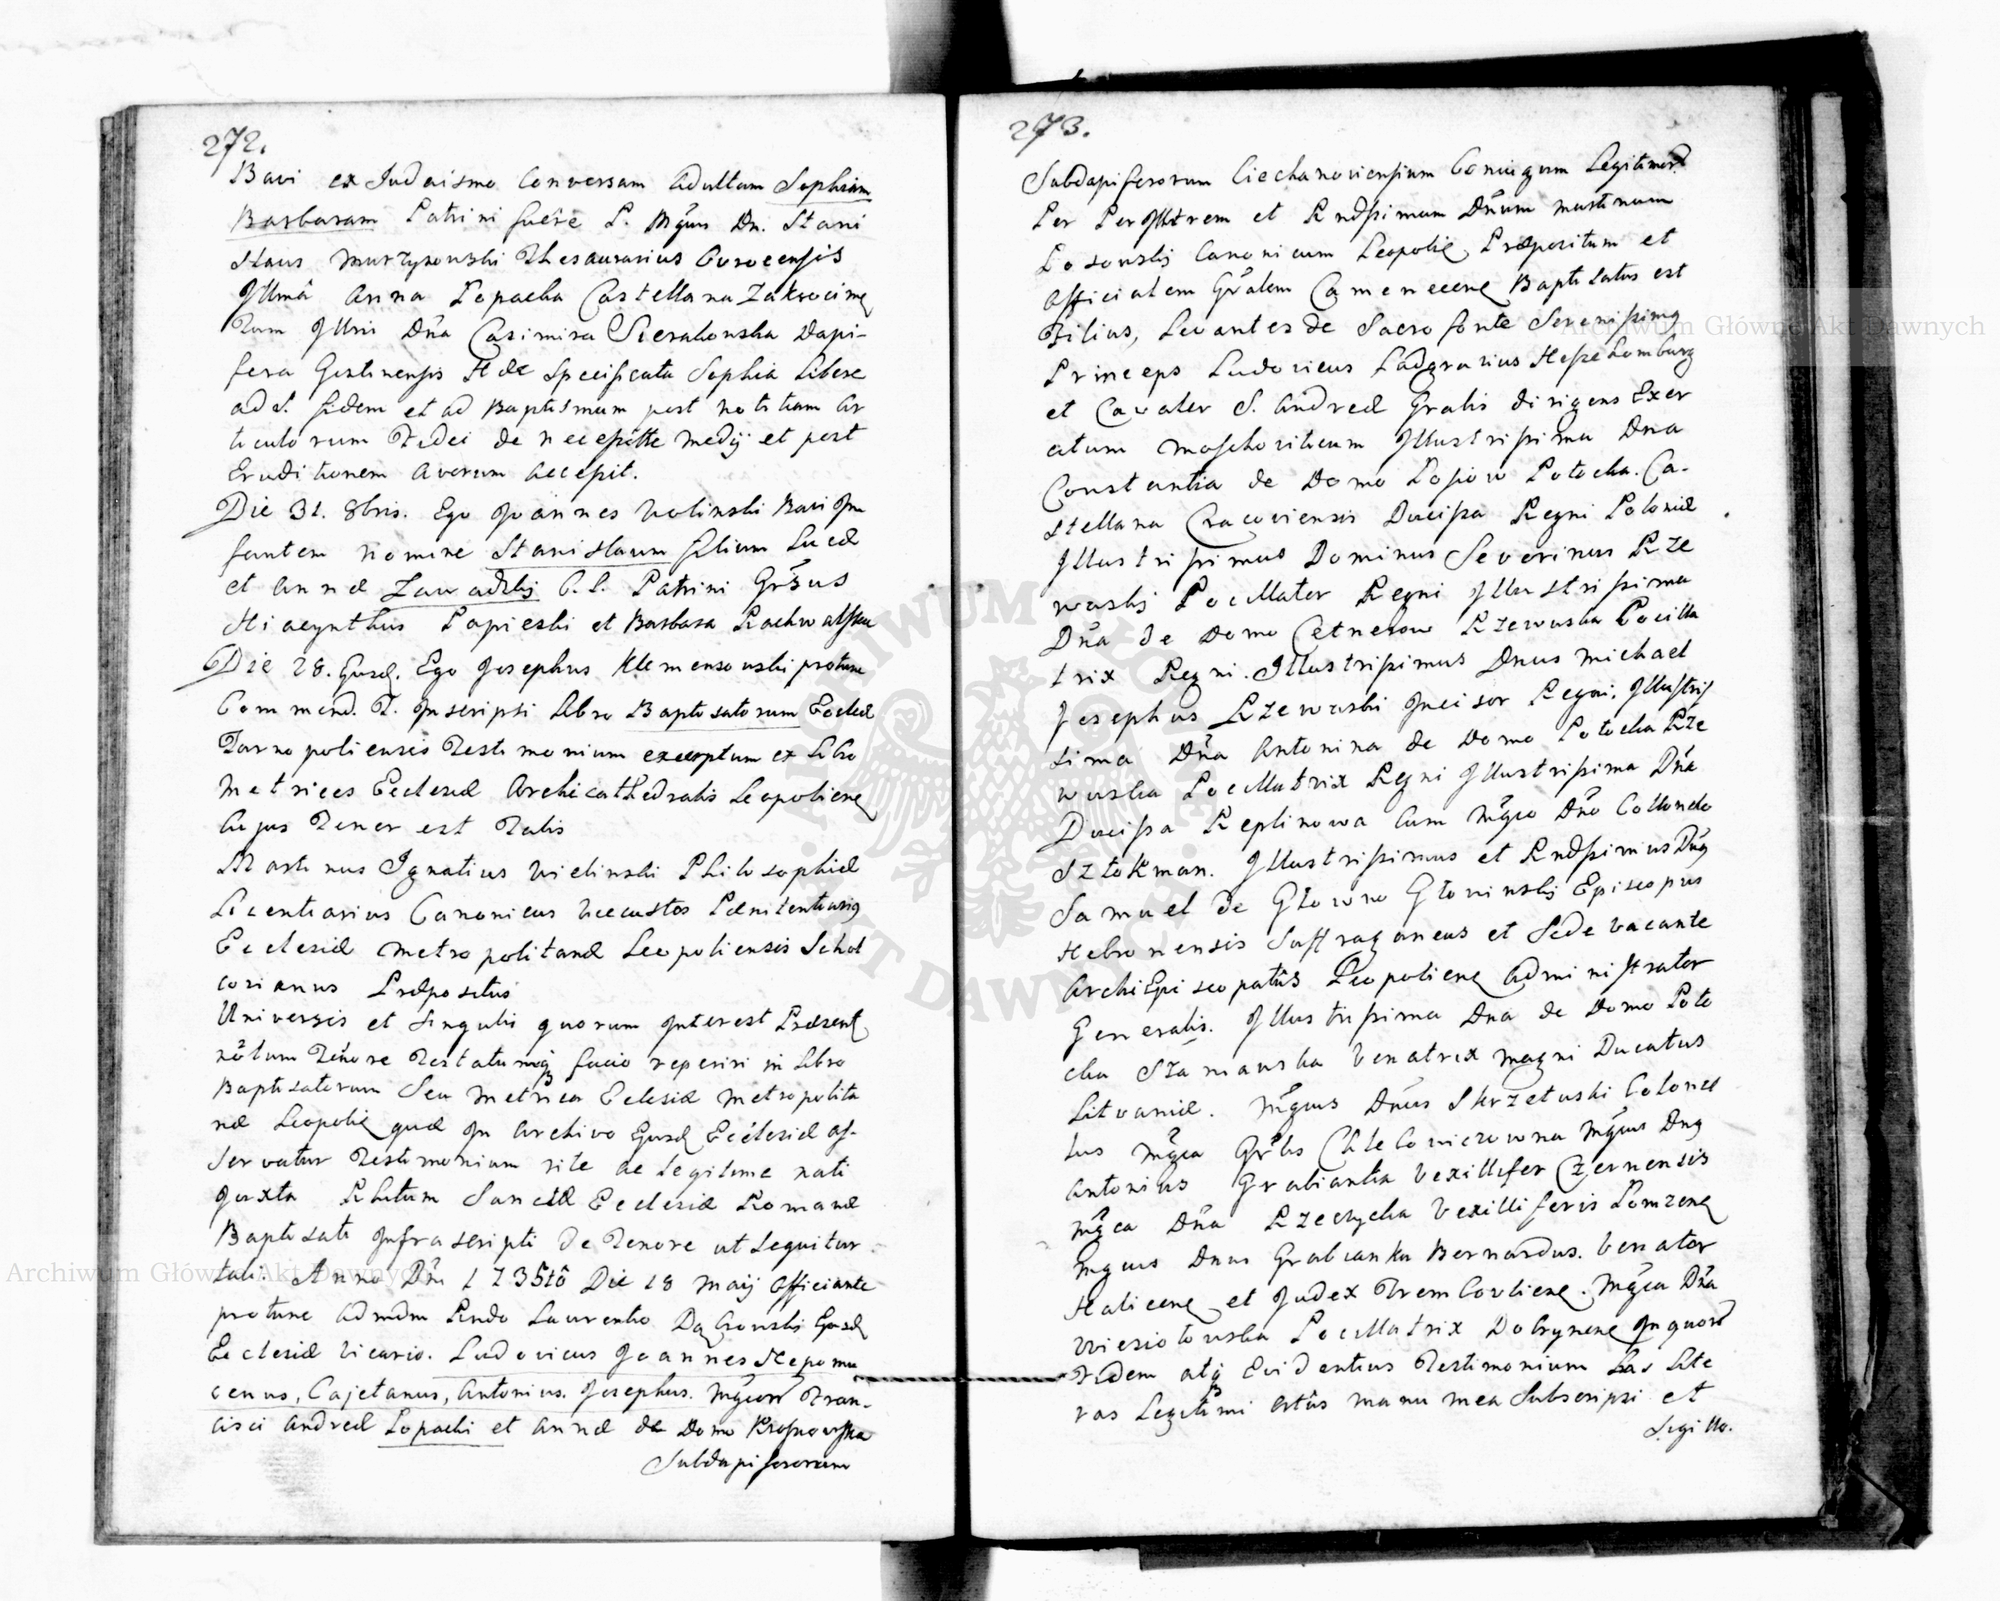 272.
Bavi ex Judaismo Conversam Adultam Sophiam
Barbaram Patrini fuêre P. Mgnus Dn. Stani
slaus Murzynowski Thesaurarius
Illmâ Anna Łopacka Castellana Zakrocime
Tum Illris Dña Casimira Sierakowska Dapi-
fera Gostinensis Hæc specificata Sophia Libere
ad S. fidem et ad Baptismum post notitiam Ar
ticulorum Fidei de necessitte medij et post
Eruditionem Accepit.
Die 31. 8bris. Ego Joannes Wolinski Bavi Jn
fantem nomine Stanislaum filium Lucæ
et Annæ Zawadzkij C. L. Patrini Grsus
Hiacynthus Łapieski et Barbara Rachwalska
Die 28. Ejusd. Ego Josephus Klemensowski protunc
Commend. T. Inscripsi Libro Baptisatorum Ecclæ
Tarnopoliensis Testimonium excerptum ex Libro
Metrices Ecclesiæ Archicathedralis Leopoliens
Cujus Tenor est Talis
Martinus Ignatius Wielinski Philosophiæ
Licentiarius Canonicus Vicecustos Pænitentiarius
Ecclesiæ Metropolitanæ Leopoliensis Schol
corianus Præpositus
Universis et singulis quorum Interest Præsent
nõtum Tenore Testatumq facio reperiri in Libro
Baptisatorum Seu Metrica Eclesiæ Metropolita
næ Leopolie quæ Jn Archivo Ejusd Ecclesiæ as-
servatur Testimonium rite ac legitime nati
Juxta Rhitum Sanctæ Ecclesiæ Romanæ
Baptisati Infrascripti de Tenore ut sequitur
tali. Anno Dñi 1735tô Die 18 Maij Officiante
protunc Admdm Rndo Laurentio Dąbrowski Ejusd
Ecclesiæ Vicario. Ludovicus Joannes Nepomu
cenus, Cajetanus, Antonius. Josephus. Mgcor Fran-
cisci Andreæ Łopacki et Annæ de Domo Krosnowska
Subdapiferorum
273.
Subdapiferorum Ciechanoviensium Conjugum Legitimor
Per Perillstrem et Rndssimum Dñum Martinum
Łosowskij Canonicum Leopolie, Præpositum et
Officialem Grãlem Camenecene Baptisatus est
Filius, Levantes de Sacro fonte Serenissimus
Princeps Ludovicus Ladgravius Hessehomburg
et Cavaler S. Andreæ Gralis dirigens Exer
citum Moschoviticum Illustrissima Dna
Constantia de Domo Łosiow Potocka. Ca-
stellana Cracoviensis Ducissa Regni Poloniæ
Illustrissimus Dominus Severinus Rze
wuskij Pocillator Regni Illustrissima
Dña de Domo Cetnerow Rzewuska Pocilla
trix Regni. Illustrissimus Dnus Michael
Josephus Rzewuski Incisor Regni. Illustris
sima Dña Antonina de Domo Potocka Rze
wuska Pocillatrix Regni Illustrissima Dña
Ducissa Replinowa Cum Mgco Dño Collondo
Sztokman. Illustrissimus et Rndssimus Dñs
Samuel de Głowno Głowinskij Episcopus
Hebronensis Suffraganeus et Sede vacante
ArchiEpiscopatûs Leopoliene Administrator
Generalis. Illustrissima Dna de Domo Poto
cka Szaniawska Venatrix Magni Ducatus
Litvaniæ. Mgnus Dñus Skrzetuski Colonel
lus Mgca Grlis Chlebowiczowna Mgnus Dns
Antonius Grabianka Vexillifer Czernensis
Mgca Dña Rzeczycka Vexilliferis Łomzene
Mgnus Dnus Grabianka Bernardus. Venator
Halicene et Judex Trembovliene. Mgca Dña
Wiesiołowska Pocillatrix Dobrynene Jn quor
Fidem atq Evidentius Testimonium has Lite
ras Legitimi Ortûs manu mea Subscripsi et
Sigillo.
Archiwum Główne Akt Dawnych
Archiwum Główne Akt Dawnych
ARCHIWUM GŁÓWNE AKT DAWNYCH